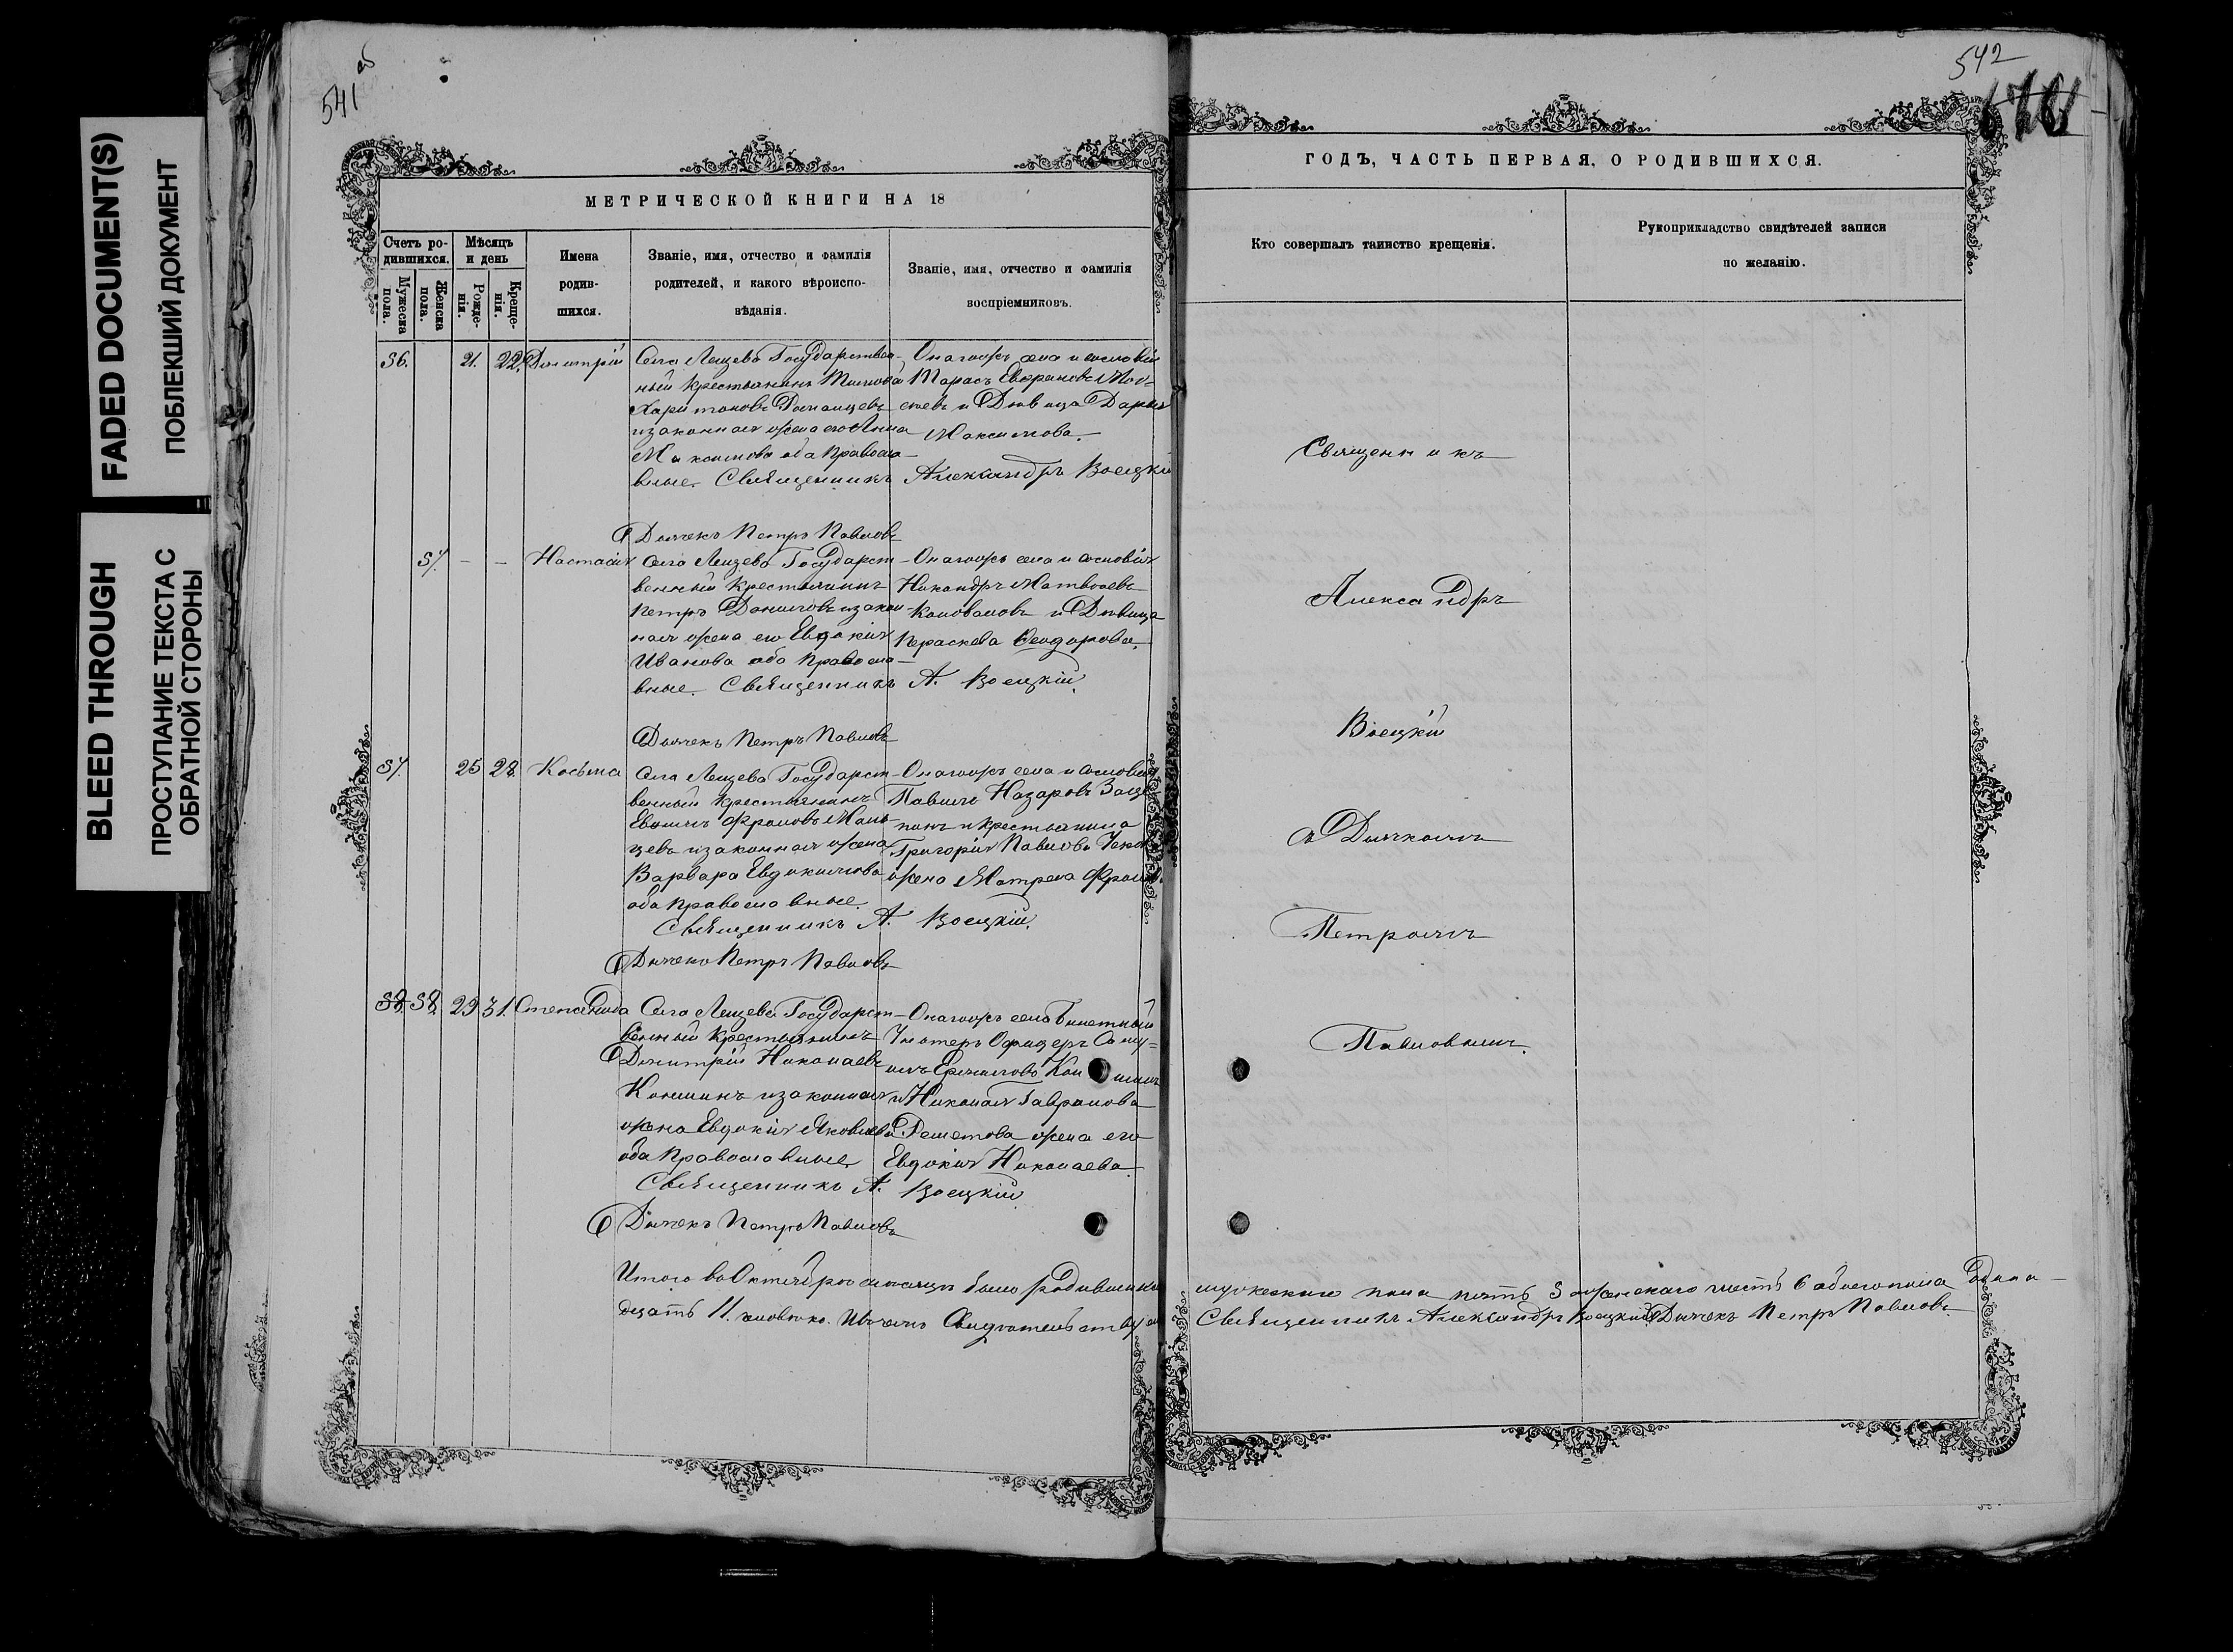 FADED DOCUMENT(S)
ПОБЛЕКШИЙ ДОКУМЕНТ
BLEED THROUGH
ПРОСТУПАНИЕ ТЕКСТА С
ОБРАТНОЙ СТОРОНЫ
541 об
МЕТРИЧЕСКОЙ КНИГИ НА 18
Счетъ ро-
дившихся.
Мужеска
пола.
Женска
пола.
Мѣсяцъ
и день
Рожде-
нія.
Креще-
нія.
Имена
родив-
шихся.
Званіе, имя, отчество и фамилія
родителей, и какого вѣроиспо-
вѣданія.
Званіе, имя, отчество и фамилія
воспріемниковъ.
56. 21. 22. Димитрій
Села Лещева Государствен-
ный крестьянинъ Тимофей
Харитоновъ
и законная жена его Анна
Максимова оба Правосла-
вные. Священникъ Александръ Воецкій
Онагожъ села и сословія
Тарасъ
и Дѣвица Дарья
Максимова.
Дьячекъ Петръ Павловъ
57. - - Настасія
Села Лещева Государст-
венный крестьянинъ
Петръ Даниловъ и закон-
ная жена его Евдокія
Иванова оба Правосла-
вные. Священникъ А. Воецкій.
Онагожъ села и сословія
Никандръ Матвеевъ
Коноваловъ и Дѣвица
Параскева Ѳеодорова.
Дьячекъ Петръ Павловъ
57. 25 28. Косьма
Села Лещева Государст-
венный крестьянинъ
Фроловъ
и законная жена
Варвара Евдокимова
оба Православные.
Священникъ А. Воецкій.
Онагожъ села и сословія
Павелъ Назаровъ
и крестьянина
Григорія Павлова
жена Матрена
Дьячекъ Петръ Павловъ
58. 58. 29 31. Степанида
Села Лещева Государст-
венный крестьянинъ
Димитрій Николаевъ
Коншинъ и законная
жена Евдокія Яковлева
оба Православные
Священникъ А. Воецкій
Онагожъ села Билетный
Унтеръ Офицеръ
и Николая Гаврилова
Решетова жена его
Евдокія Николаева.
Дьячекъ Петръ Павловъ
Итого во Октябрѣ мѣсяцѣ было родившихся
дцать 11. человѣкъ. Въ чемъ Свидѣтельствуемъ
542
ГОДЪ, ЧАСТЬ ПЕРВАЯ, О РОДИВШИХСЯ.
Кто совершалъ таинство крещенія.
Рукоприкладство свидѣтелей записи
по желанію.
Священникъ
Александръ
Воецкій
съ Дьячкомъ
Петромъ
Павловымъ.
мужескаго пола пять 5 женскаго шесть 6 обоего пола одина-
Священникъ Александръ Воецкій Дьячекъ Петръ Павловъ